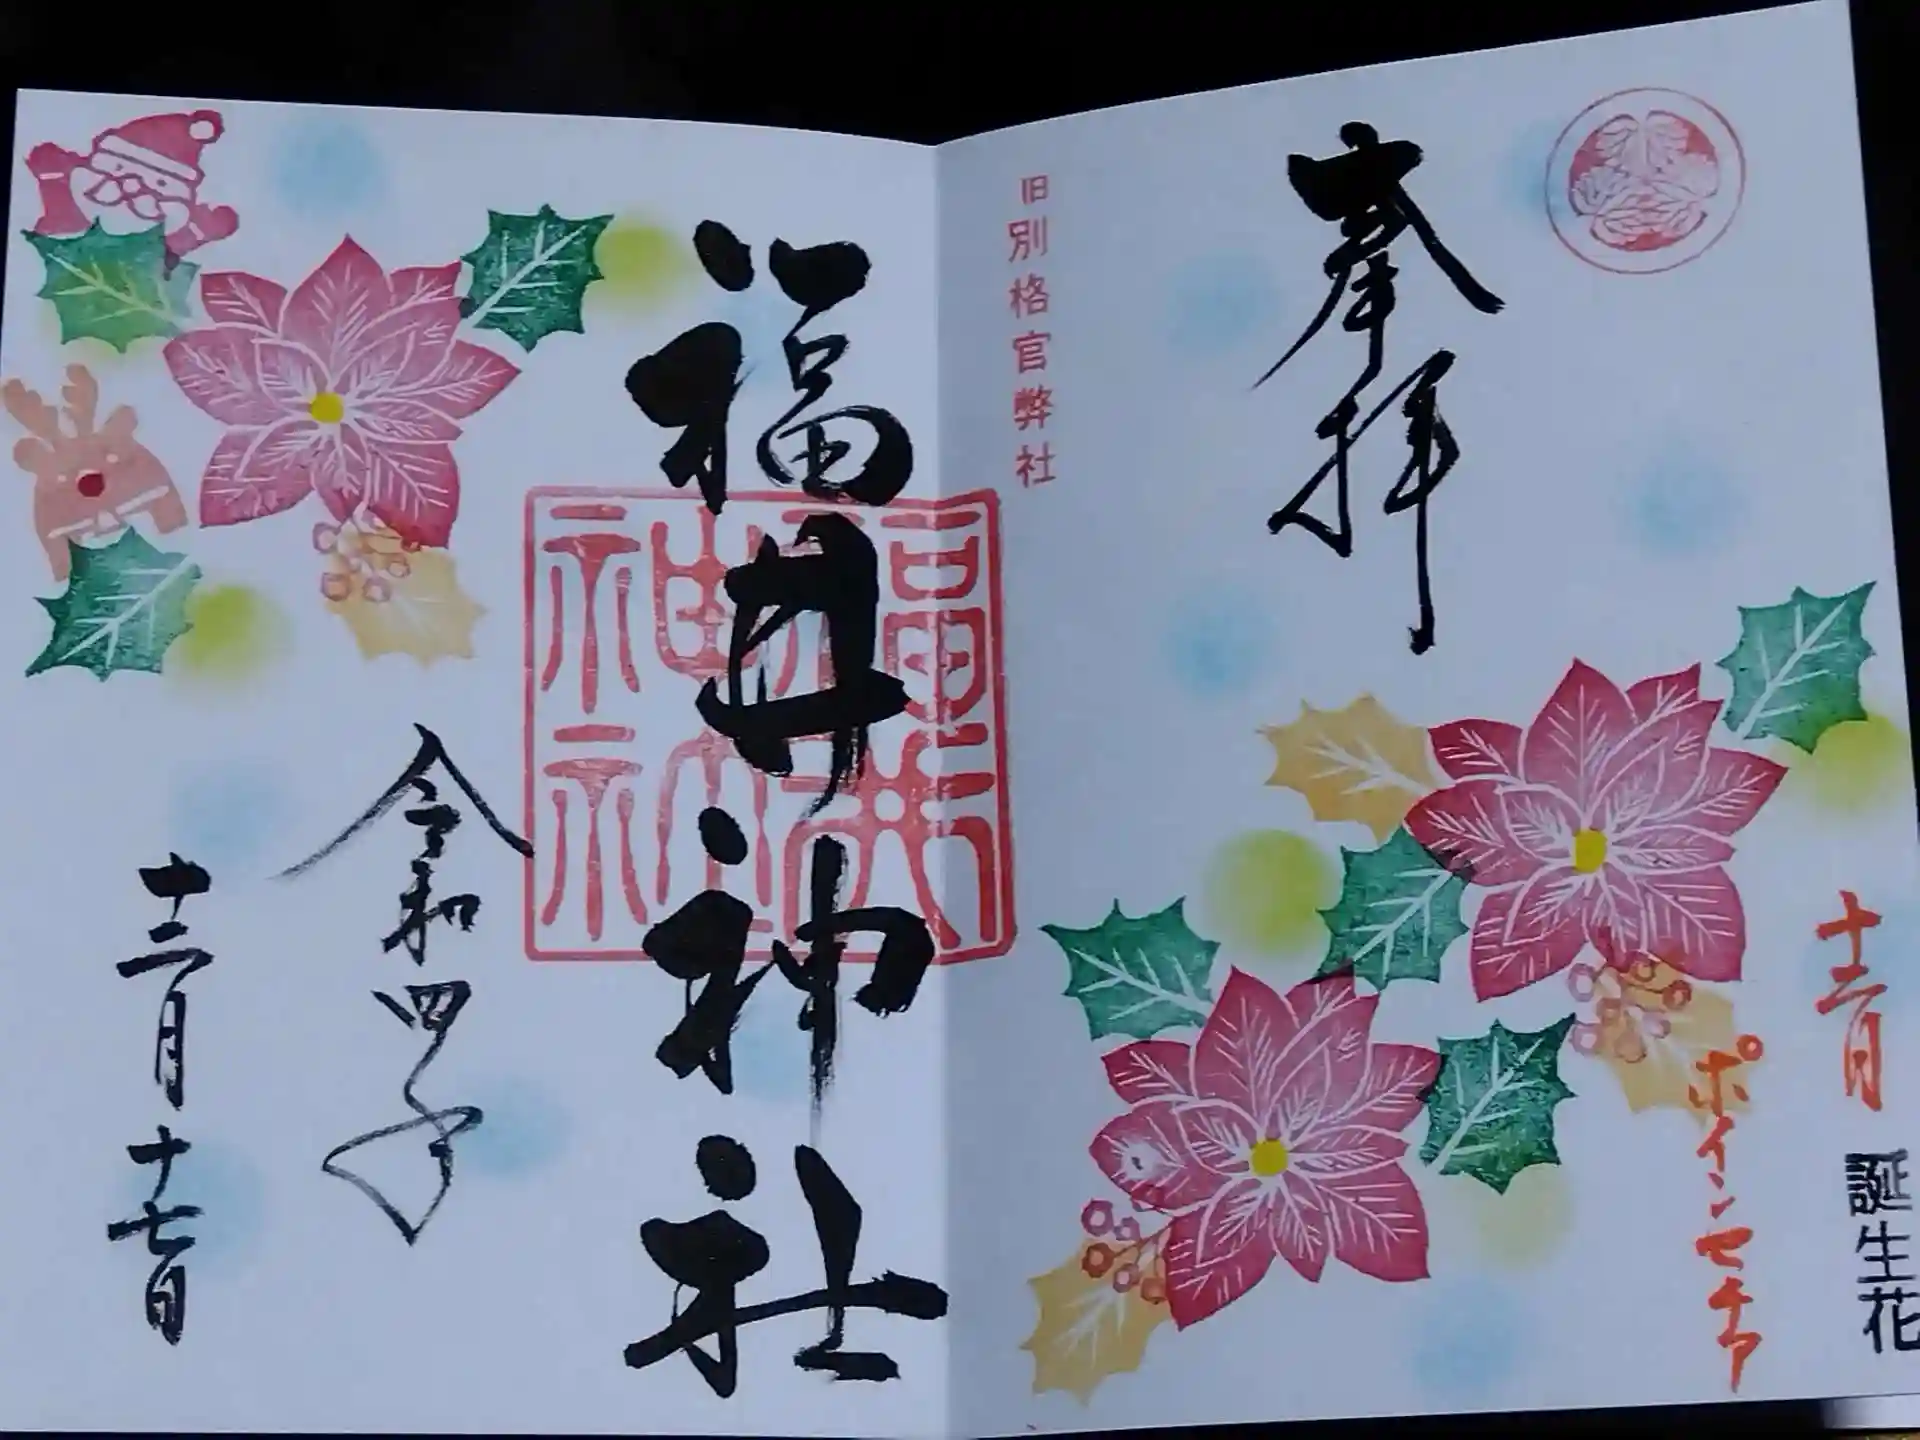 奉拝
十二月
誕生花
ポインセチア
旧別格官弊社
福井神社
福井
神社
令和四年
十二月十七日